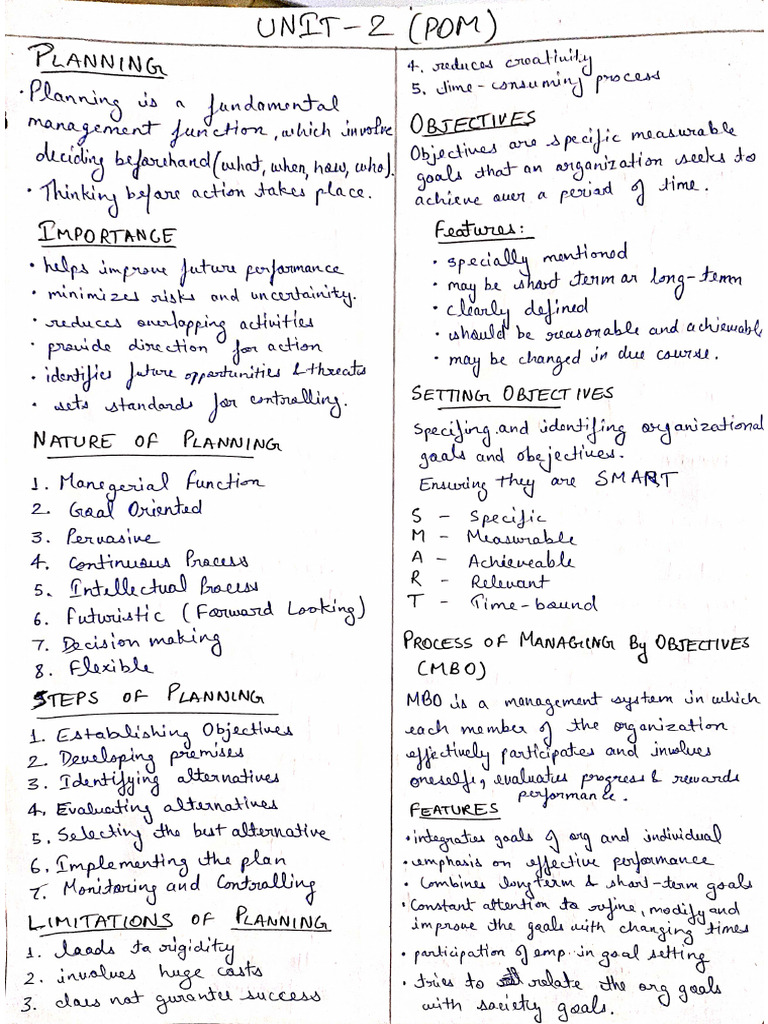 UNIT-2 (POM)
PLANNING
• Planning is a fundamental
management function, which involve
deciding beforehand (what, when, how, who).
• Thinking before action takes place.
IMPORTANCE
• helps improve future performance
• minimizes risks and uncertainity.
• reduces overlapping activities
• provide direction for action
• identifies future opportunities & threats
• sets standards for controlling.
NATURE OF PLANNING
1. Manegerial Function
2. Goal Oriented
3. Pervasive
4. Continuous Process
5. Intellectual Process
6. Futuristic (Forward Looking)
7. Decision making
8. Flexible
STEPS OF PLANNING
1. Establishing Objectives
2. Developing premises
3. Identifying alternatives
4. Evaluating alternatives
5. Selecting the best alternative
6. Implementing the plan
7. Monitoring and Controlling
LIMITATIONS OF PLANNING
1. leads to rigidity
2. involves huge costs
3. does not gurantee success
4. reduces creativity
5. time-consuming process
OBJECTIVES
Objectives are specific measurable
goals that an organization seeks to
achieve over a period of time.
Features:
• specially mentioned
• may be short term or long-term
• clearly defined
• should be reasonable and achievable
• may be changed in due course.
SETTING OBJECTIVES
Specifing and identifing organizational
goals and obejectives.
Ensuring they are SMART
S - Specific
M - Measurable
A - Achieveable
R - Relevant
T - Time-bound
PROCESS OF MANAGING By OBJECTIVES
(MBO)
MBO is a management system in which
each member of the organization
effectively participates and involves
oneself, evaluates progress & rewards
performance.
FEATURES
• integrates goals of org and individual
• emphasis on effective performance
• Combines longterm & short-term goals
• Constant attention to refine, modify and
improve the goals with changing times
• participation of emp. in goal setting
• tries to relate the org goals
with society goals.